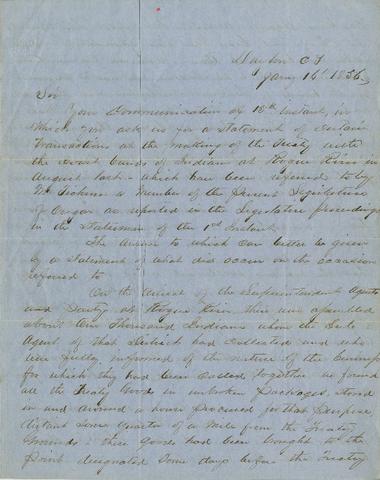 Dayton O T
Jany 16th 1856
Sir
Your Communication of 13th instant, in
which you ask us for a statement of certain
transactions at the making of the Treaty with
the several bands of Indians at Rogue River in
August last - which have been referred to by
Mr. a member of the present Legislature
of Oregon as reported in the Legislative proceedings
in the Statesman of the 1st Instant.
The answer to which can better be given
by a statement of what did occur on the occasion
referred to
On the arrival of the Superintendent Agents
and party at Rogue River there were assembled
about One Thousand Indians whom the Sub
Agent of that District had collected and who
were fully informed of the nature of the business
for which they had been called together we found
all the Treaty Goods in unbroken packages, stored
in and around a house procured for that purpose,
distant some quarter of a mile from the Treaty
Grounds - these goods had been brought to the
point designated some days before the Treaty